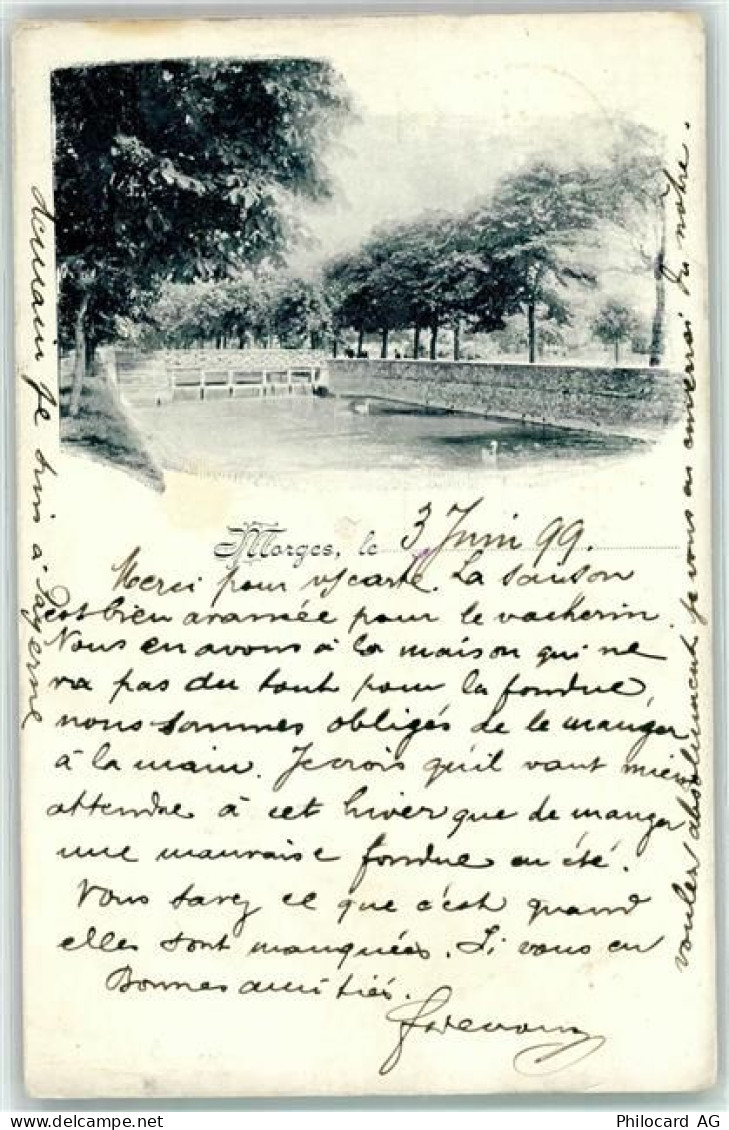 Morges, le 3 Juin 99.
Merci pour vs carte. La saison
est bien avancée pour le vacherin.
Nous en avons à la maison qui ne
va pas du tout pour la fondue,
nous sommes obligés de le manger
à la main. Je crois qu'il vaut mieux
attendre à cet hiver que de manger
une mauvaise fondue en été.
Vous savez ce que c'est quand
elles sont manquées. Si vous en
voulez absolument je vous en enverrai du nôtre.
Bonnes amitiés.
je suis à Payerne
Philocard AG